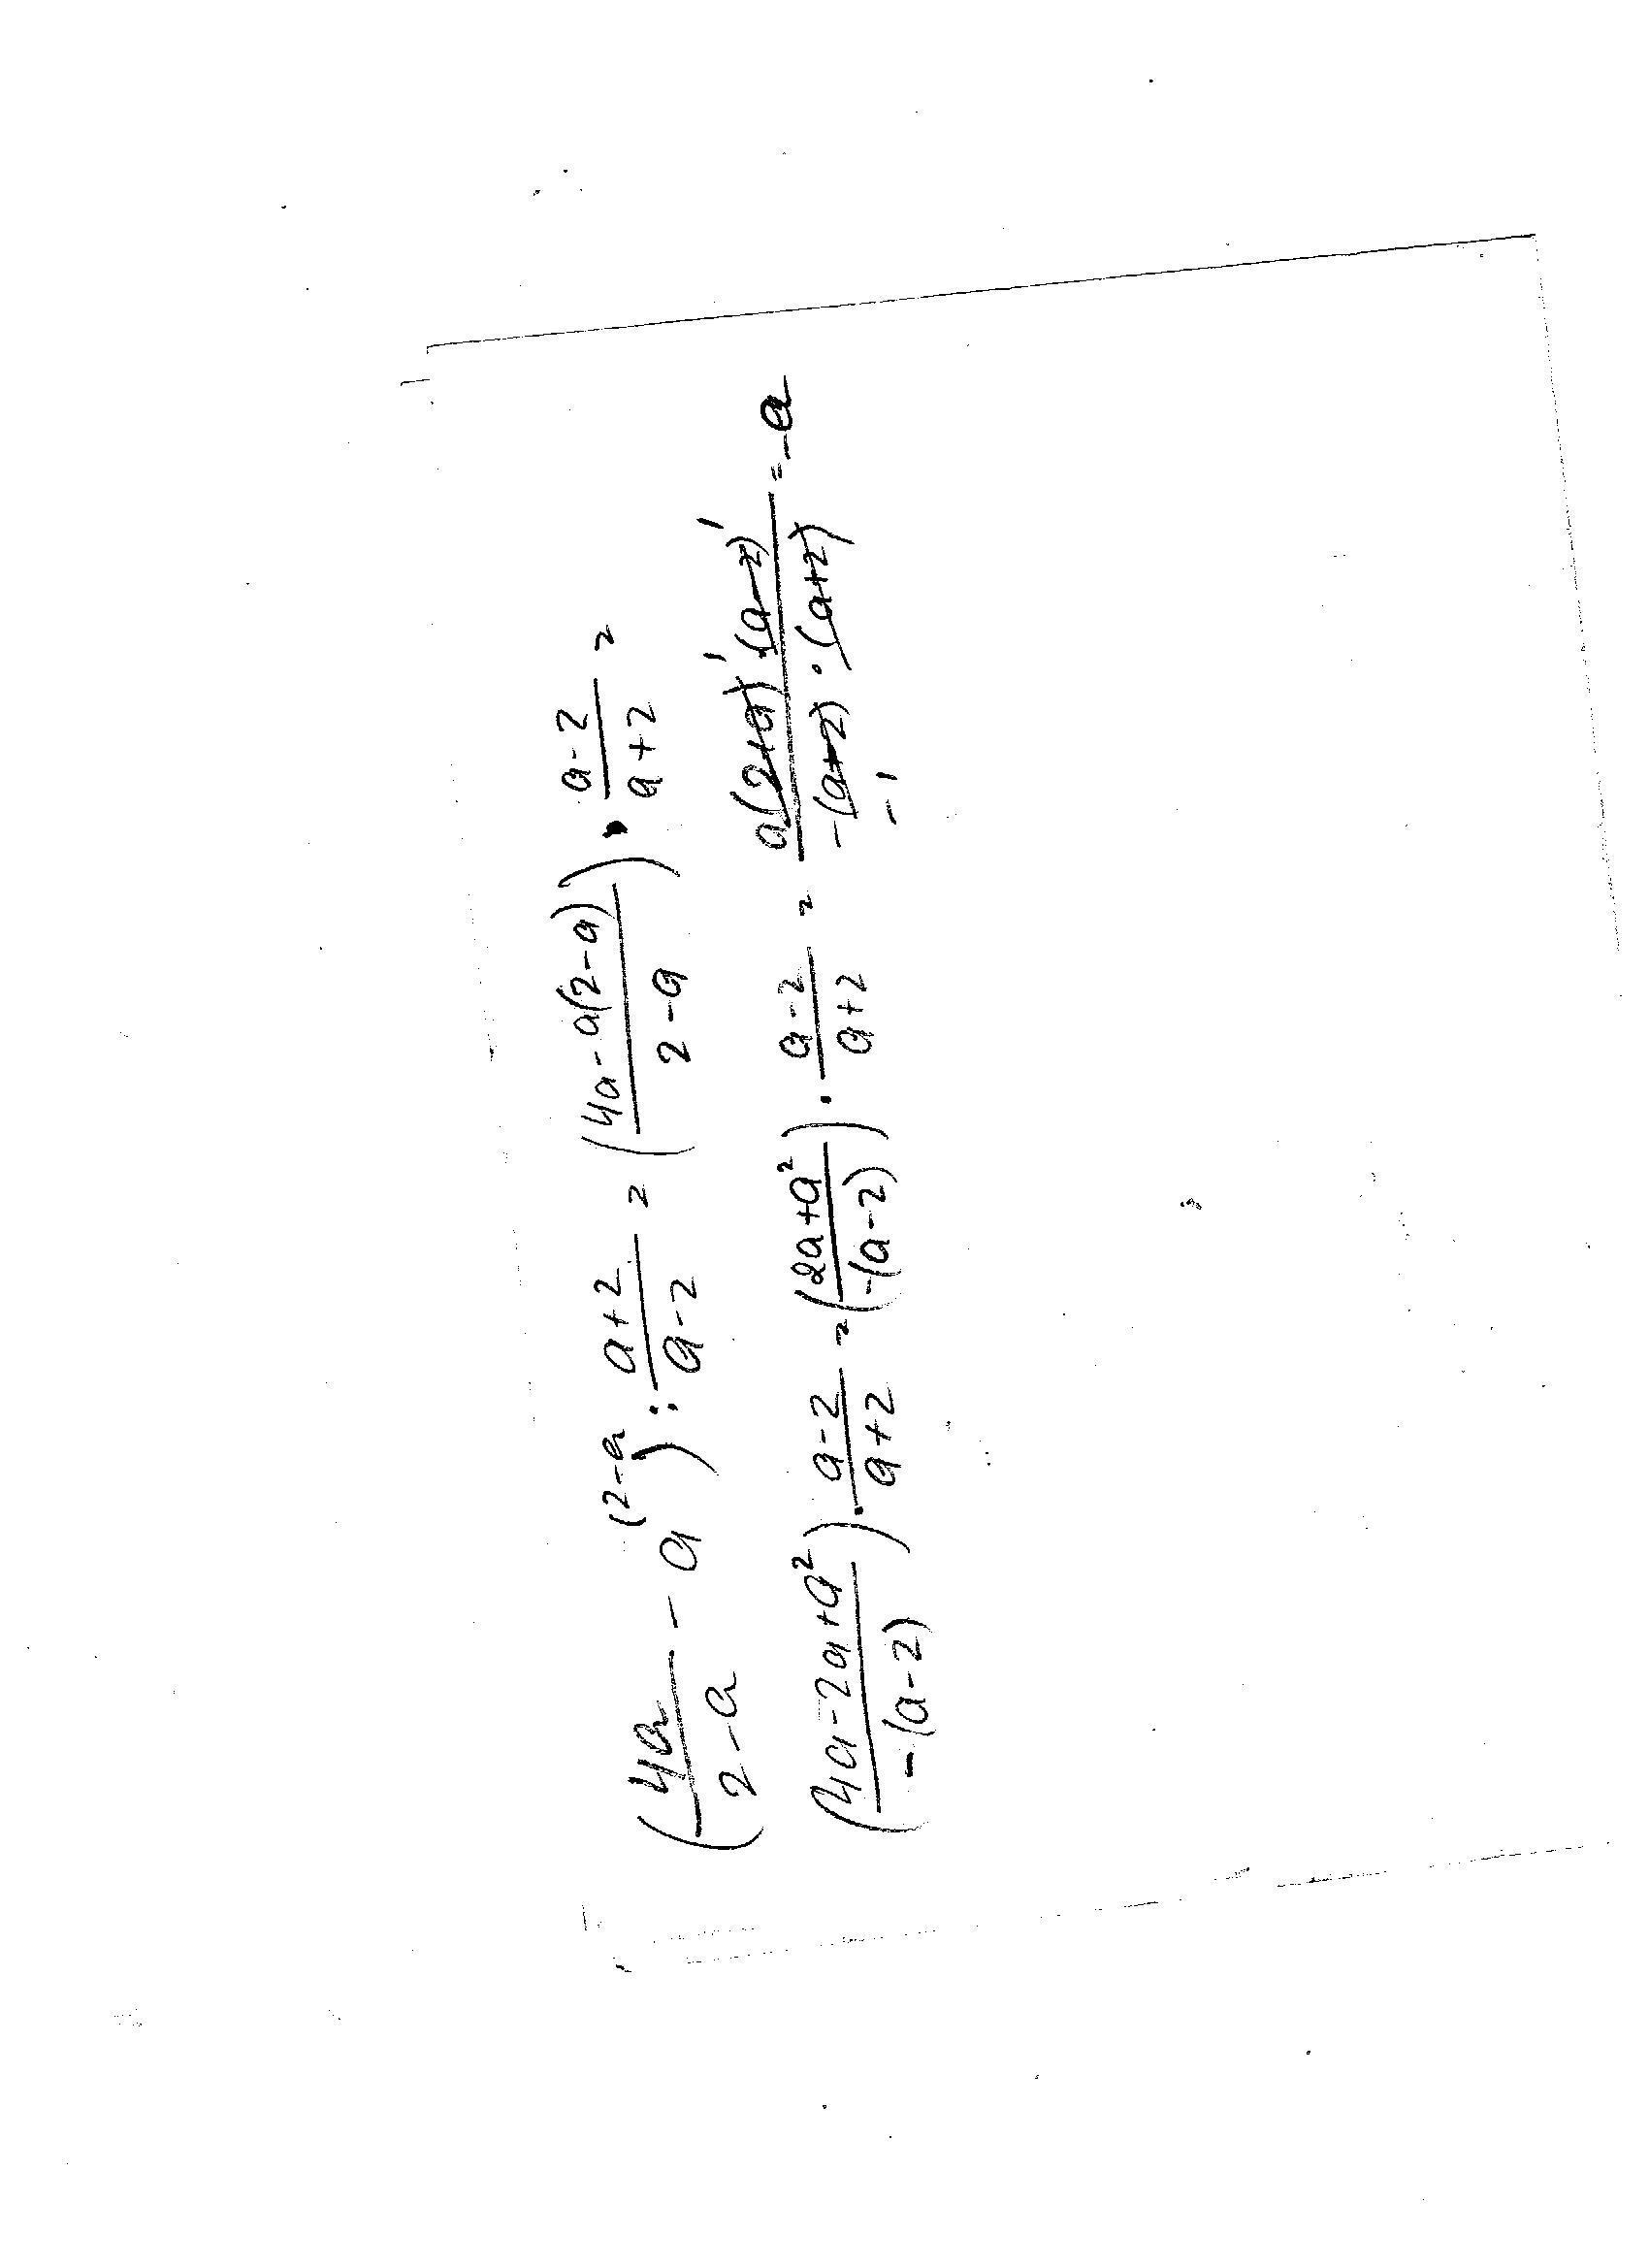 (4a/(2-a) - a^(2-a) : (a+2)/(a-2) = ((4a-a(2-a))/(2-a)) · (a-2)/(a+2) =
((4a-2a+a²)/(-(a-2))) · (a-2)/(a+2) = ((2a+a²)/(-(a-2))) · (a-2)/(a+2) = (a(2+a)¹·(a-2)¹)/(-(a+2)·(a+2)) = -a
-1